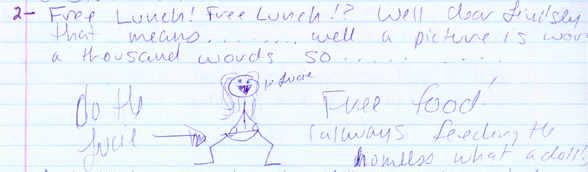 2- Free Lunch! Free Lunch!? Well dear Lindsey
that means........ well a picture is wor
a thousand words so..........
Do the
Lucie
Lucie
Free food!
(always feeding the
homless what a doll!